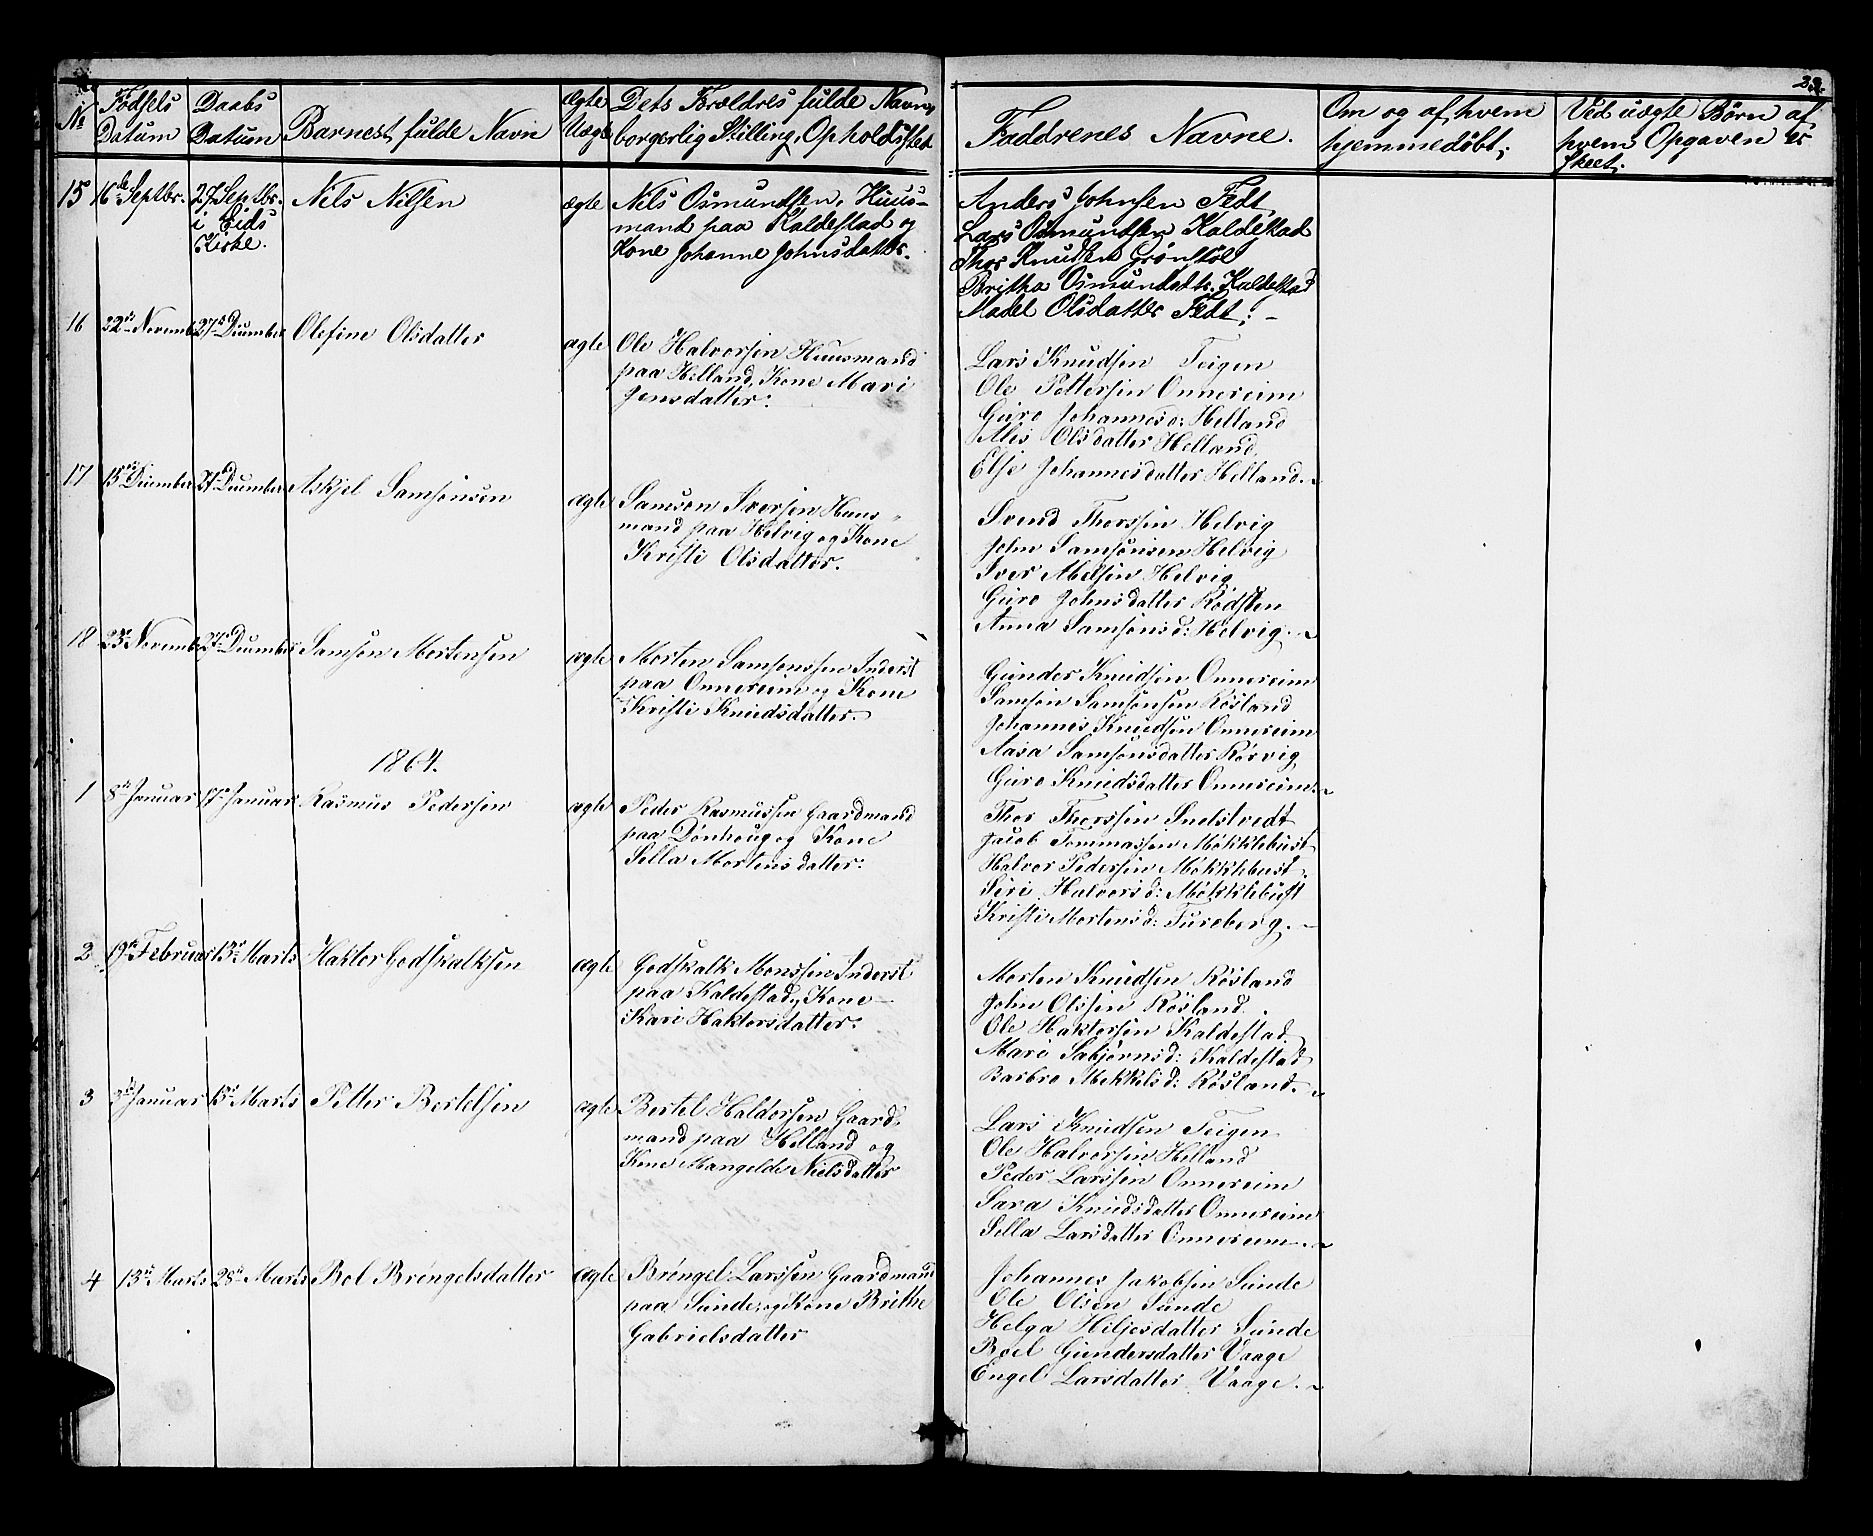 23.
No
Fødsels Datum
Daabs Datum
Barnets fulde Navn
Ægte Uægte
Dets Forældres fulde Navn, borgerlig Stilling, Opholdssted
Faddrenes Navne.
Om og af hvem hjemmedøbt;
Ved uægte Børn af hvem Opgaven er skeet;
15 16de Septbr. 27 Septbr. i Eids Kirke. Nils Nilsen ægte
Nils Osmundsen, Huus-
mand paa Kaldestad og
Kone Johanne Johnsdatter.
Anders Johnsen Fedt
Lars Osmundsen Kaldestad
Thor Knudsen Grønstøl
Britha Osmundsdtr. Kaldestad
Madel Olsdatter Fedt; -
16 22de Novemb 27de Deiember Olefine Olsdatter ægte
Ole Halvorsen Huusmand
paa Helland, Kone Mari
Jensdatter:
Lars Knudsen Teigen
Ole Pettersen Onnereim
Guro Johannesd: Helland
Alis Olsdatter Helland
Else Johannesdatter Helland.~
17 15de Deiember 27de Deiember Askjel Samsonsøn ægte
Samson Iversen Huus-
mand paa Helvig og Kone
Kristi Olsdatter.
Svend Thorssen Helvig
John Samsonsen Helvig
Iver Melsen Helvig
Guro Johnsdatter Rødsten
Anna Samsonsd: Helvig.~
18 23de Novemb 27de Deiember Samson Mortensen ægte
Morten Samsonssen Inderst
paa Onnereim og Kone
Kristi Knudsdatter.
Gunder Knudsen Onnereim
Samson Samsonsen Røsland
Johannes Knudsøn Onnereim
Aasa Samsonsdatter Rørvig
Guro Knudsdatter Onnereim.~
1864.
1 8de Januar 17de Januar Rasmus Pedersen ægte
Peder Rasmussen Gaardmand
paa Dønhoug og Kone
Sella Mortensdatter:
Thor Thorssen Snelstvedt
Jacob Tommassen Møkklebust
Halvor Pedersen Møkklebust
Siri Halvorsd: Møkklebust
Kristi Mortensd: Fureberg.-
2 19de Februar 13de Marts Haktor Godskalksen ægte
Godskalk Monssen Inderst
paa Kaldestad, Kone
Kari Haktorsdatter:
Morten Knudsen Røsland
John Olssen Røsland.
Ole Haktorsen Kaldestad.
Mari Sabjørnsd: Kaldestad
Barbro Mekkelsd: Røsland.~
3 3de Januar 13de Marts Petter Bertelsen ægte
Bertel Haldorsen Gaard-
mand paa Helland og
Kone Mangelde Nielsdatter
Lars Knudsen Teigen
Ole Halvorsen Helland
Peder Larssen Onnereim
Sara Knudsdatter Onnereim
Sella Larsdatter Onnereim.~
4 13de Marts 28de Marts Bol Brengelsdatter ægte
Brengel Larssen Gaardmand
paa Sunde, og Kone Brithe
Gabrielsdatter
Johannes Jakobsen Sunde
Ole Olsen Sunde
Helga Hiljesdatter Sunde
Boel Gundersdatter Vaage
Engel Larsdatter Vaage.~